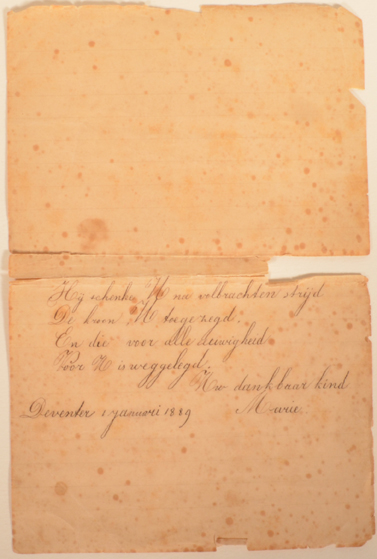 Hij schenke U na volbrachten strijd
De kroon U toegezegd.
En die voor alle eeuwigheid
Voor U is weggelegd.
Uw dankbaar kind
Deventer 1 januari 1889